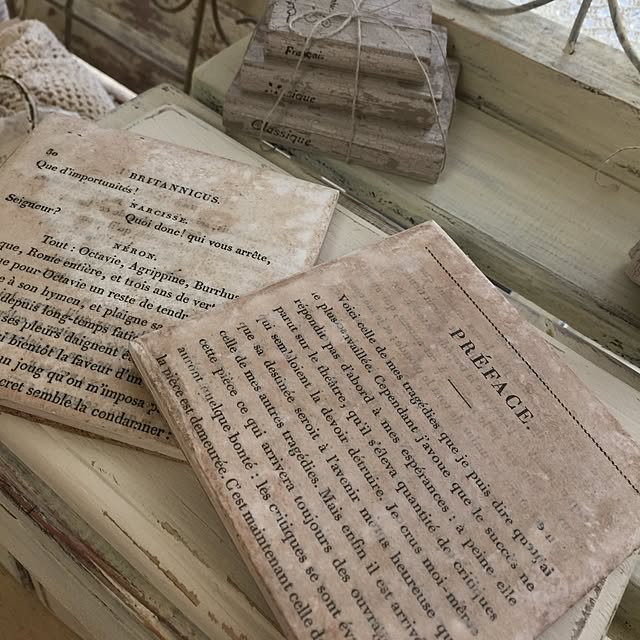 Français
Musique
Classique
BRITANNICUS.
Que d'importunités!
NARCISSE.
Quoi donc! qui vous arrête,
Seigneur?
NÉRON.
Tout: Octavie, Agrippine, Burrhus
que, Rome entière, et trois ans de vertus
que pour Octavie un reste de tendr
à son hymen, et plaigne s
depuis long-temps fati
ses pleurs daignent
bientôt la faveur d'un
un joug qu'on m'imposa
cret semble la condamner
PRÉFACE.
Voici celle de mes tragédies que je puis dire que j'ai
le plus travaillée. Cependant j'avoue que le succès ne
répondit pas d'abord à mes espérances: à peine elle
parut sur le théâtre, qu'il s'éleva quantité de critiques
qui sembloient la devoir détruire. Je crus moi-même
que sa destinée seroit à l'avenir moins heureuse que
celle de mes autres tragédies. Mais enfin il est arrivé
cette pièce ce qui arrivera toujours des ouvra
auront quelque bonté: les critiques se sont éva
la pièce est demeurée. C'est maintenant celle d